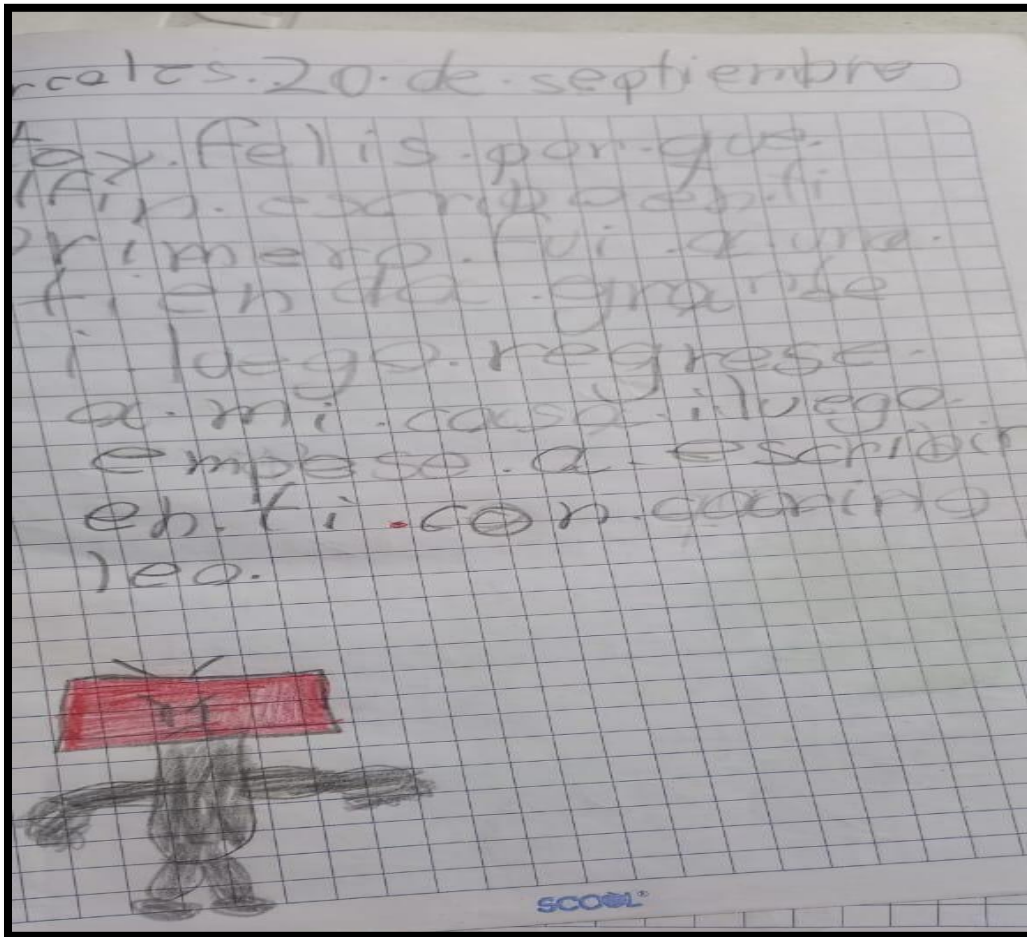 rcoles.20.de.septiembre
toy.felis.por.que.
lfin.escriboen.ti
Primero.fui.a una.
tienda.grande
i.luego.regrese.
a.mi.casa.iluego.
empese.a.escribir
en.ti.con.cariño
leo.
SCOOL